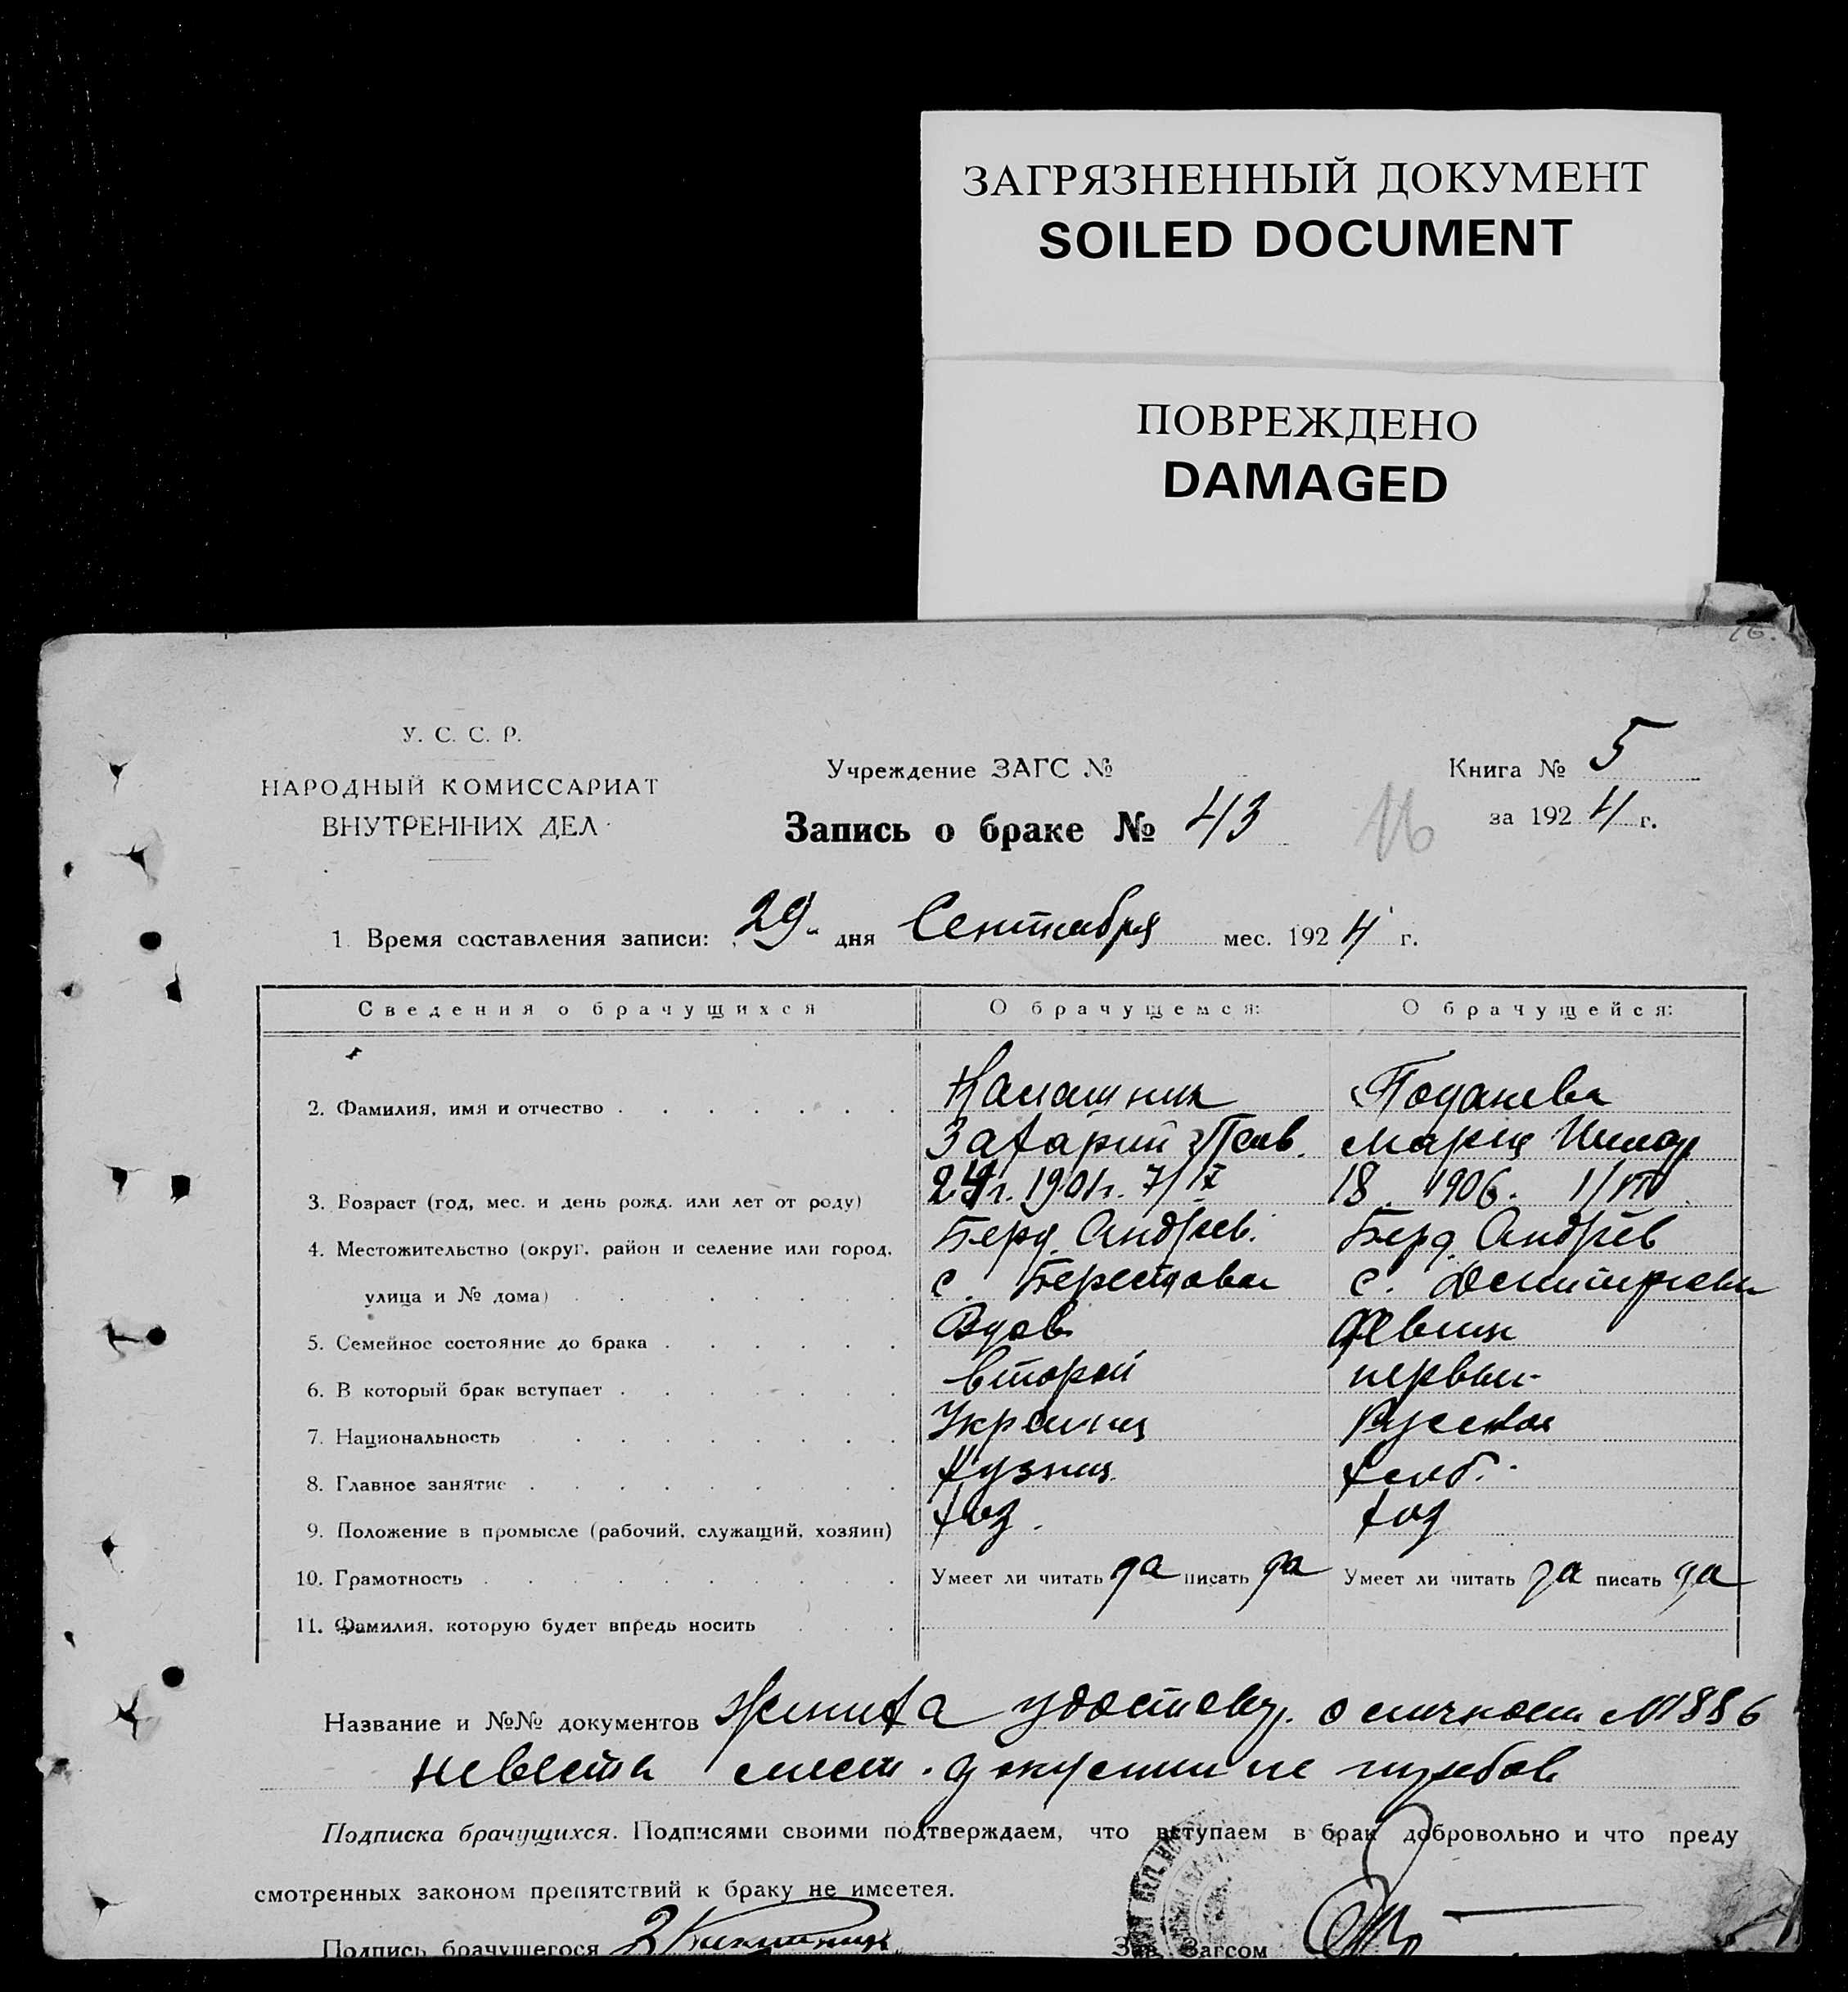 ЗАГРЯЗНЕННЫЙ ДОКУМЕНТ
SOILED DOCUMENT
ПОВРЕЖДЕНО
DAMAGED
16.
У. С. С. Р.
НАРОДНЫЙ КОМИССАРИАТ
ВНУТРЕННИХ ДЕЛ
Учреждение ЗАГС №
Запись о браке № 43
16
Книга № 5
за 1924 г.
1. Время составления записи: 29 дня Сентября мес. 1924 г.
Сведения о брачущихся О брачущемся: О брачущейся:
2. Фамилия, имя и отчество
Захарий Пав. Мария
3. Возраст (год, мес. и день рожд. или лет от роду) 24 г. 1901 г. 18 1906.
4. Местожительство (округ, район и селение или город, Берд. Андреев. Берд. Андреев
улица и № дома) с. с.
5. Семейное состояние до брака Вдов Девица
6. В который брак вступает второй первый
7. Национальность Украинец Русская
8. Главное занятие хлеб.
9. Положение в промысле (рабочий, служащий, хозяин) хоз. хоз
10. Грамотность Умеет ли читать да писать да Умеет ли читать да писать да
11. Фамилия, которую будет впредь носить
Название и №№ документов Жениха удостовер. о личности № 1886
Невеста
Подписка брачущихся. Подписями своими подтверждаем, что вступаем в брак добровольно и что преду
смотренных законом препятствий к браку не имеется.
Подпись брачущегося
Зав. Загсом